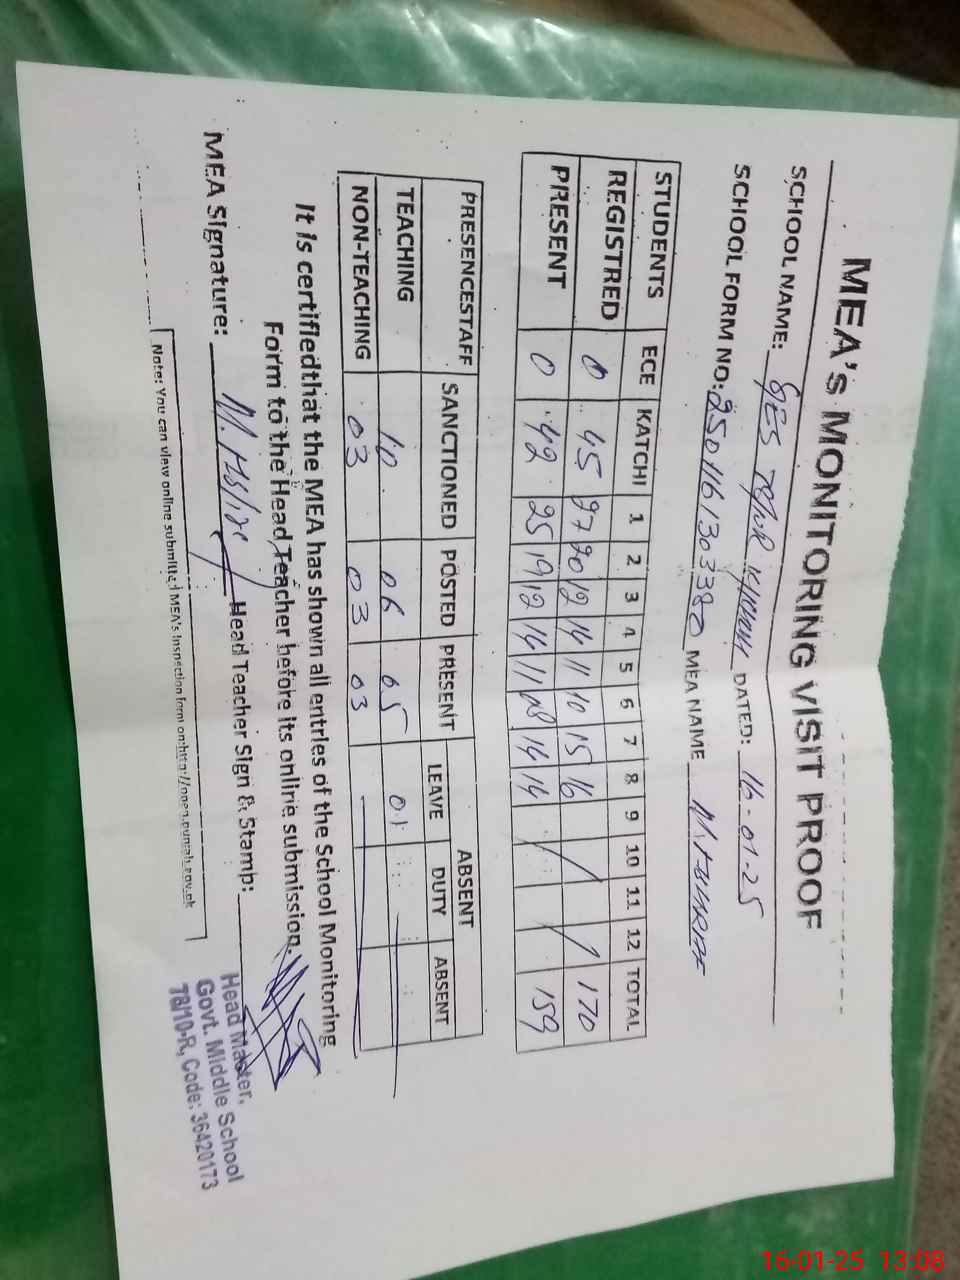 MEA's MONITORING VISIT PROOF
SCHOOL NAME: 78/10R DATED: 16-01-25
SCHOOL FORM NO: 2501161303380 MEA NAME
STUDENTS ECE KATCHI 1 2 3 4 5 6 7 8 9 10 11 12 TOTAL
REGISTRED 0 45 27 20 12 14 11 10 15 16 170
PRESENT 0 42 25 19 12 14 11 08 14 14 159
PRESENCESTAFF SANCTIONED POSTED PRESENT ABSENT
LEAVE DUTY ABSENT
TEACHING 10 06 05 01
NON-TEACHING 03 03 03
It is certifiedthat the MEA has shown all entries of the School Monitoring
Form to the Head Teacher before its online submission.
MEA Signature: Head Teacher Sign & Stamp:
Head Master,
Govt. Middle School
78/10-R, Code: 36420173
Note: You can view online submitted MEA's Inspection form on:http://open.punjab.gov.pk
16-01-25 13:08